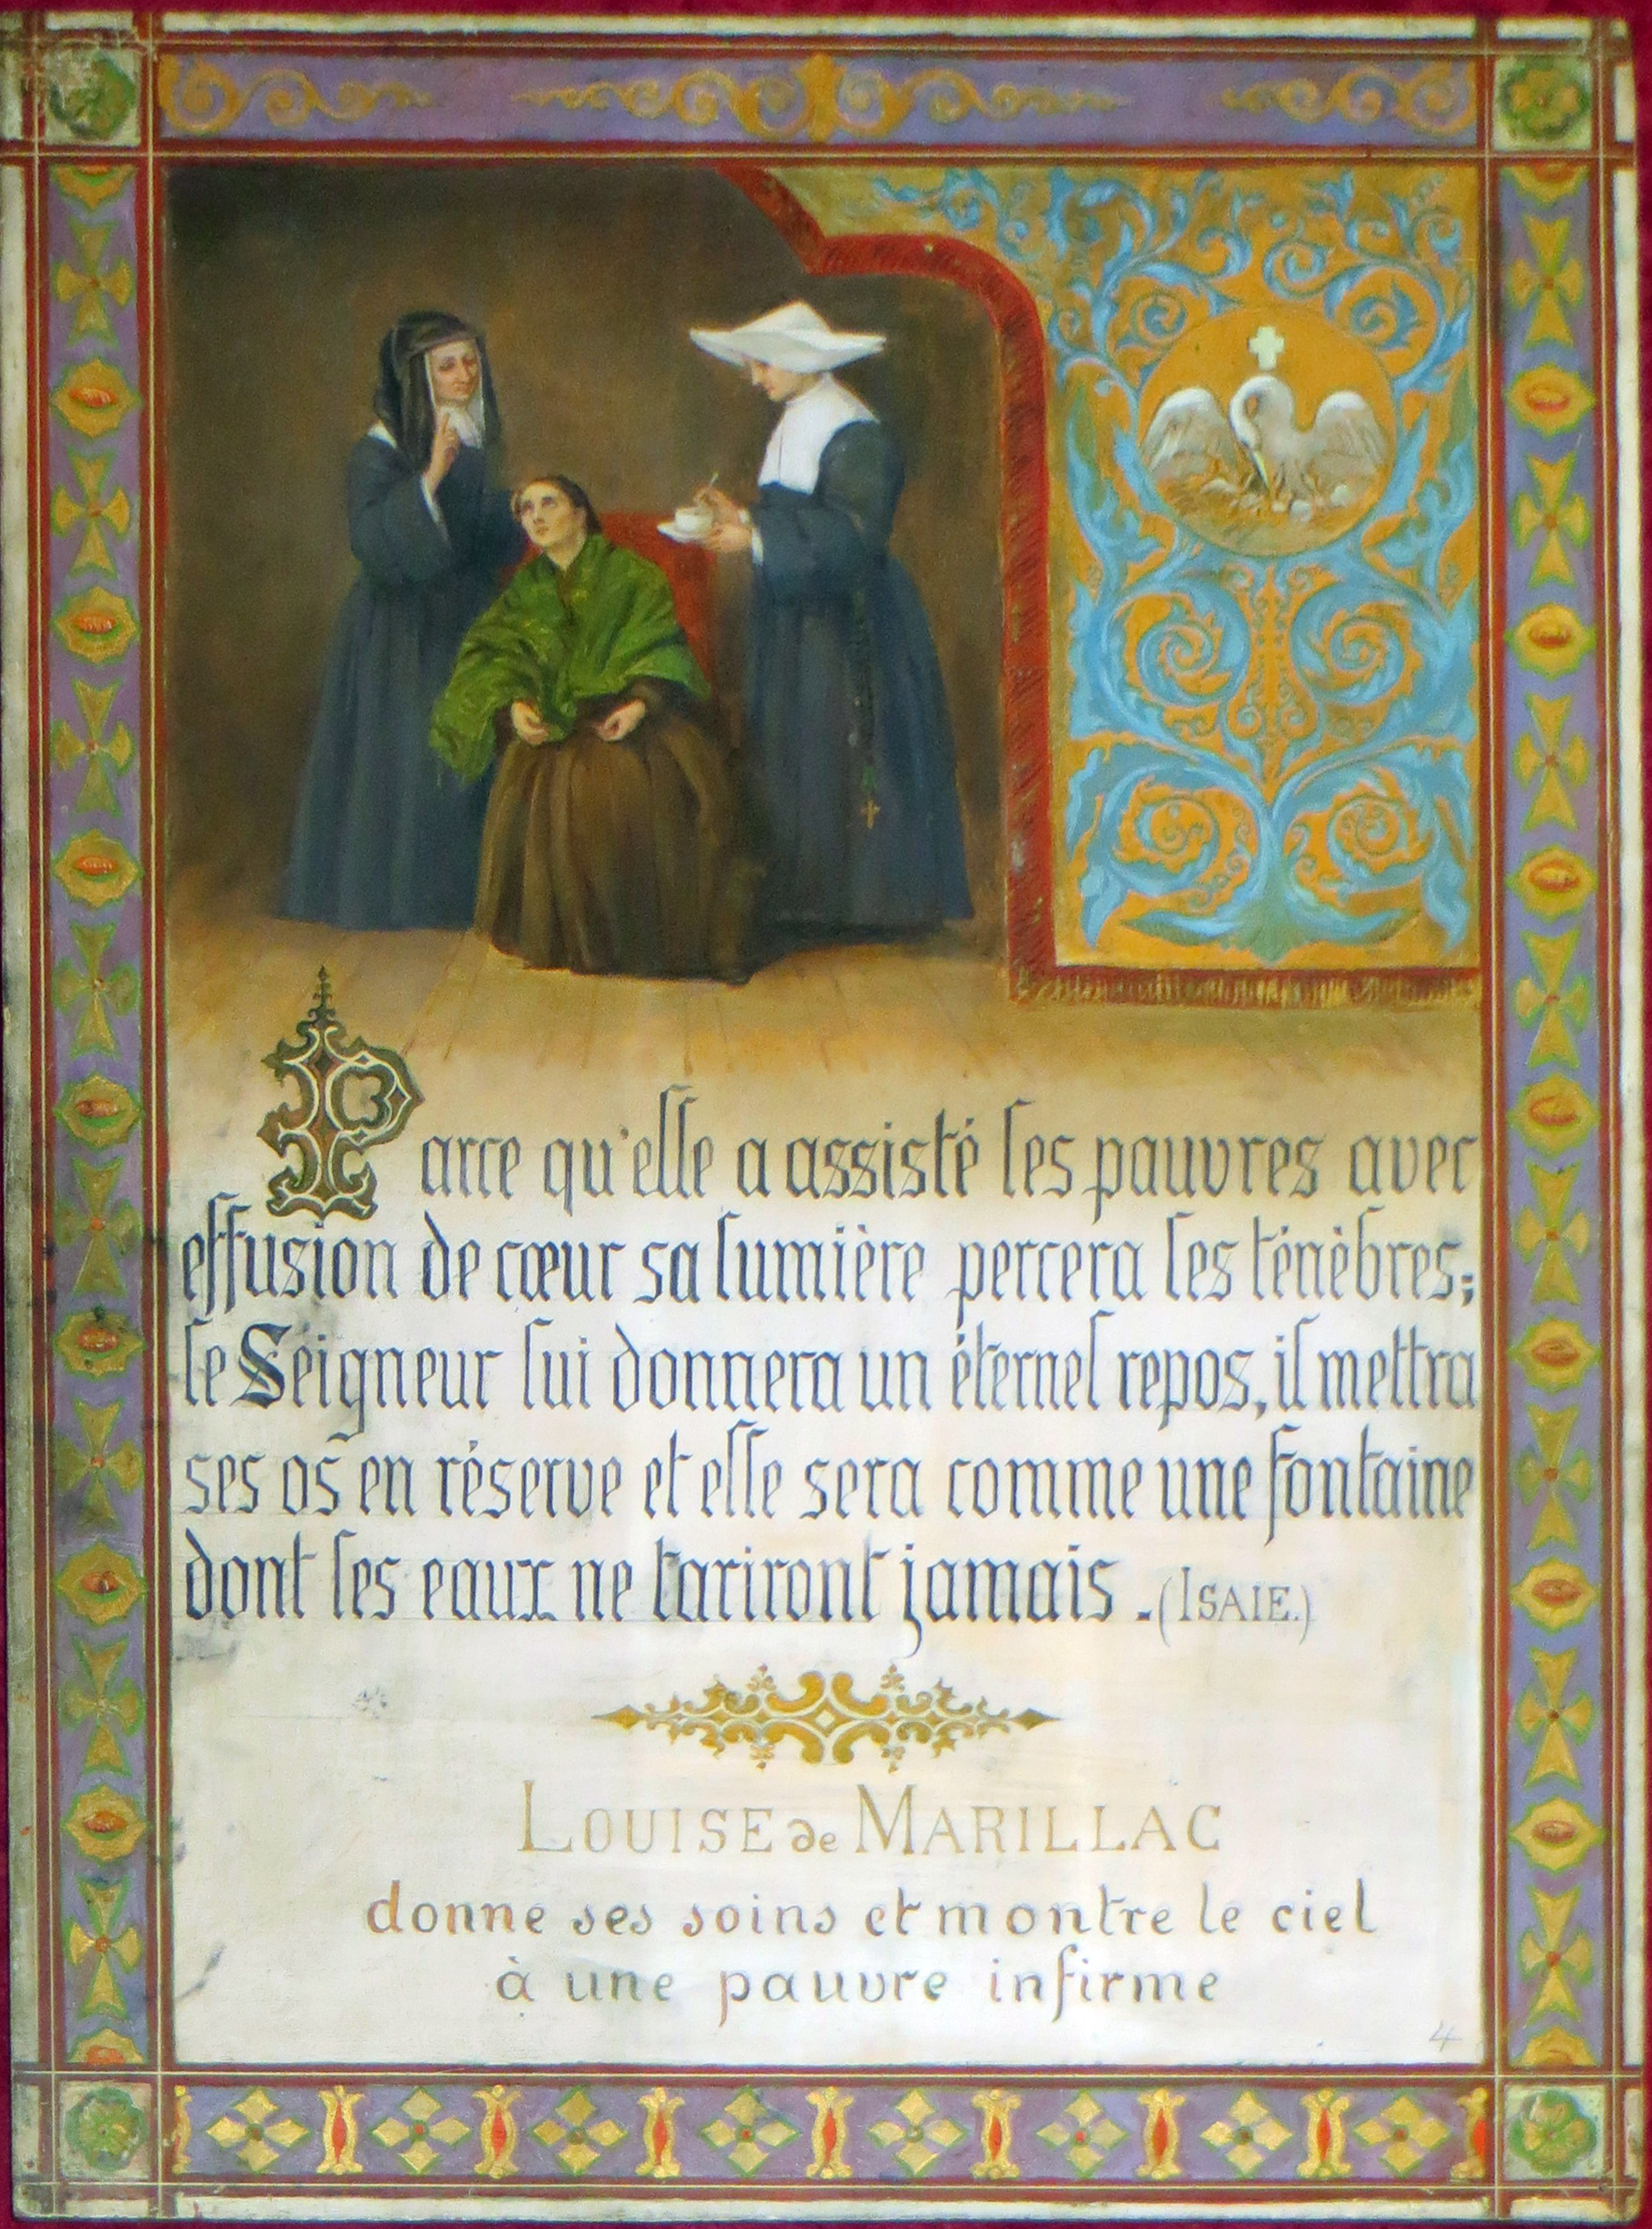 Parce qu'elle a assisté les pauvres avec
effusion de cœur sa lumière percera les ténèbres;
le Seigneur lui donnera un éternel repos, il mettra
ses os en réserve et elle sera comme une fontaine
dont les eaux ne tariront jamais. (ISAIE.)
LOUISE de MARILLAC
donne ses soins et montre le ciel
à une pauvre infirme
4